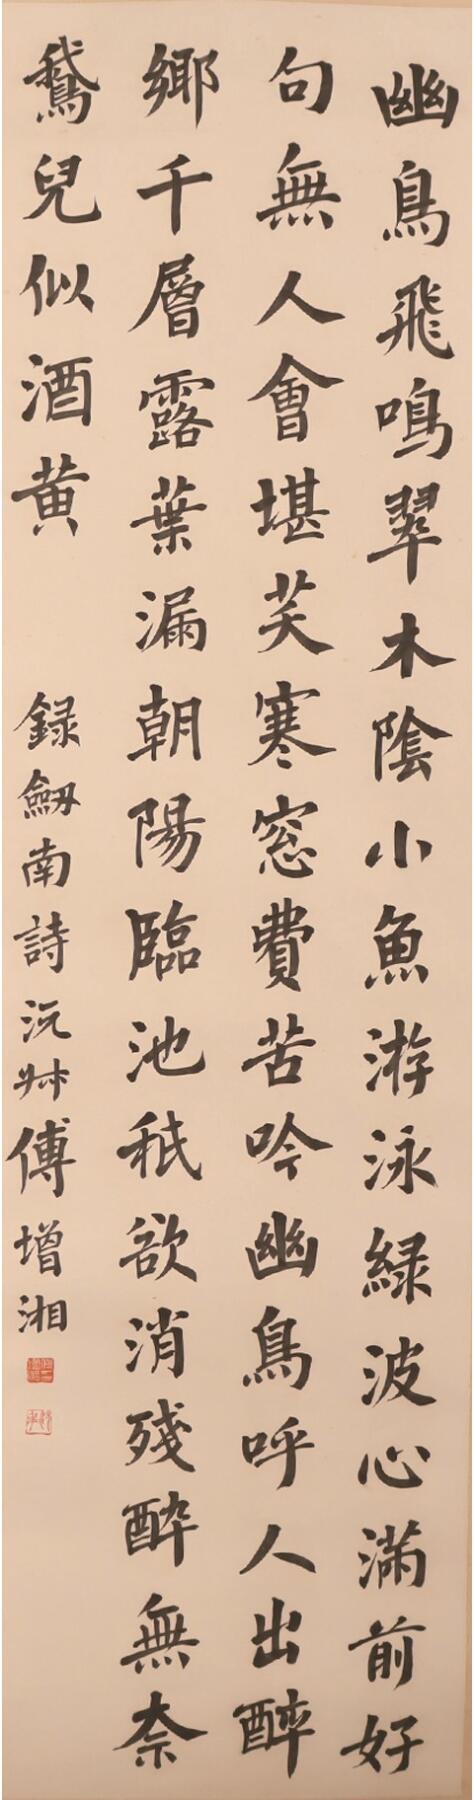 幽鳥飛鳴翠木陰小魚游泳緑波心滿前好
句無人會堪芺寒窓費苦吟幽鳥呼人出醉
鄉千層露葉漏朝陽臨池秖欲消殘醉無奈
鵞兒似酒黄
録劔南詩沅牀傅增湘